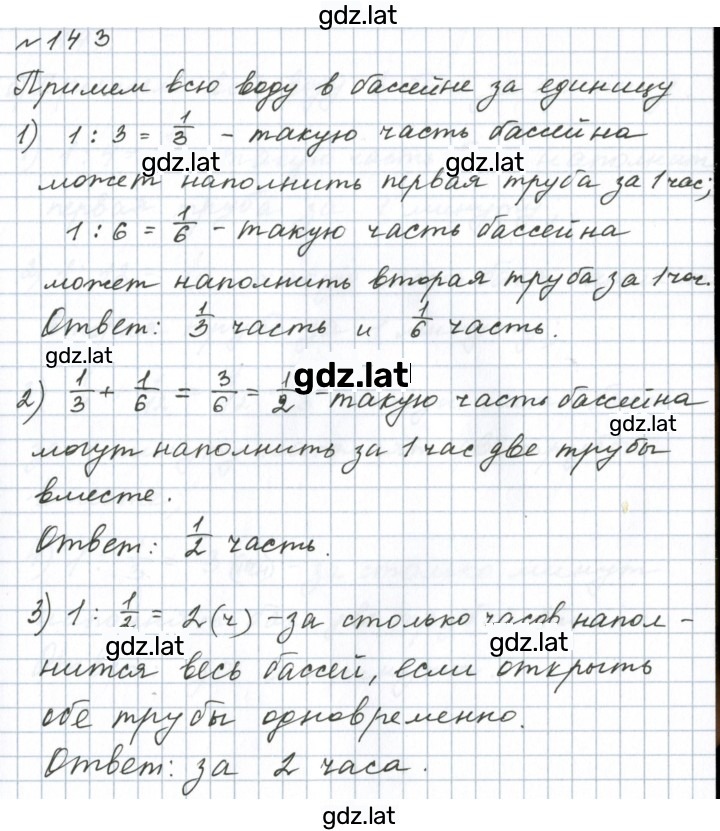 gdz.lat
№143
Примем всю воду в бассейне за единицу
1) 1 : 3 = 1/3 - такую часть бассейна
gdz.lat gdz.lat
может наполнить первая труба за 1 час;
1 : 6 = 1/6 - такую часть бассейна
может наполнить вторая труба за 1 час.
Ответ: 1/3 часть и 1/6 часть.
gdz.lat
gdz.lat
2) 1/3 + 1/6 = 3/6 = 1/2 - такую часть бассейна
gdz.lat
могут наполнить за 1 час две трубы
вместе.
Ответ: 1/2 часть.
3) 1 : 1/2 = 2 (ч) - за столько часов напол -
gdz.lat gdz.lat
нится весь бассей, если открыть
обе трубы одновременно.
Ответ: за 2 часа.
gdz.lat